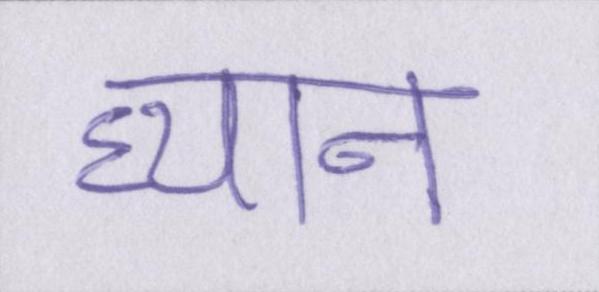 ध्यान